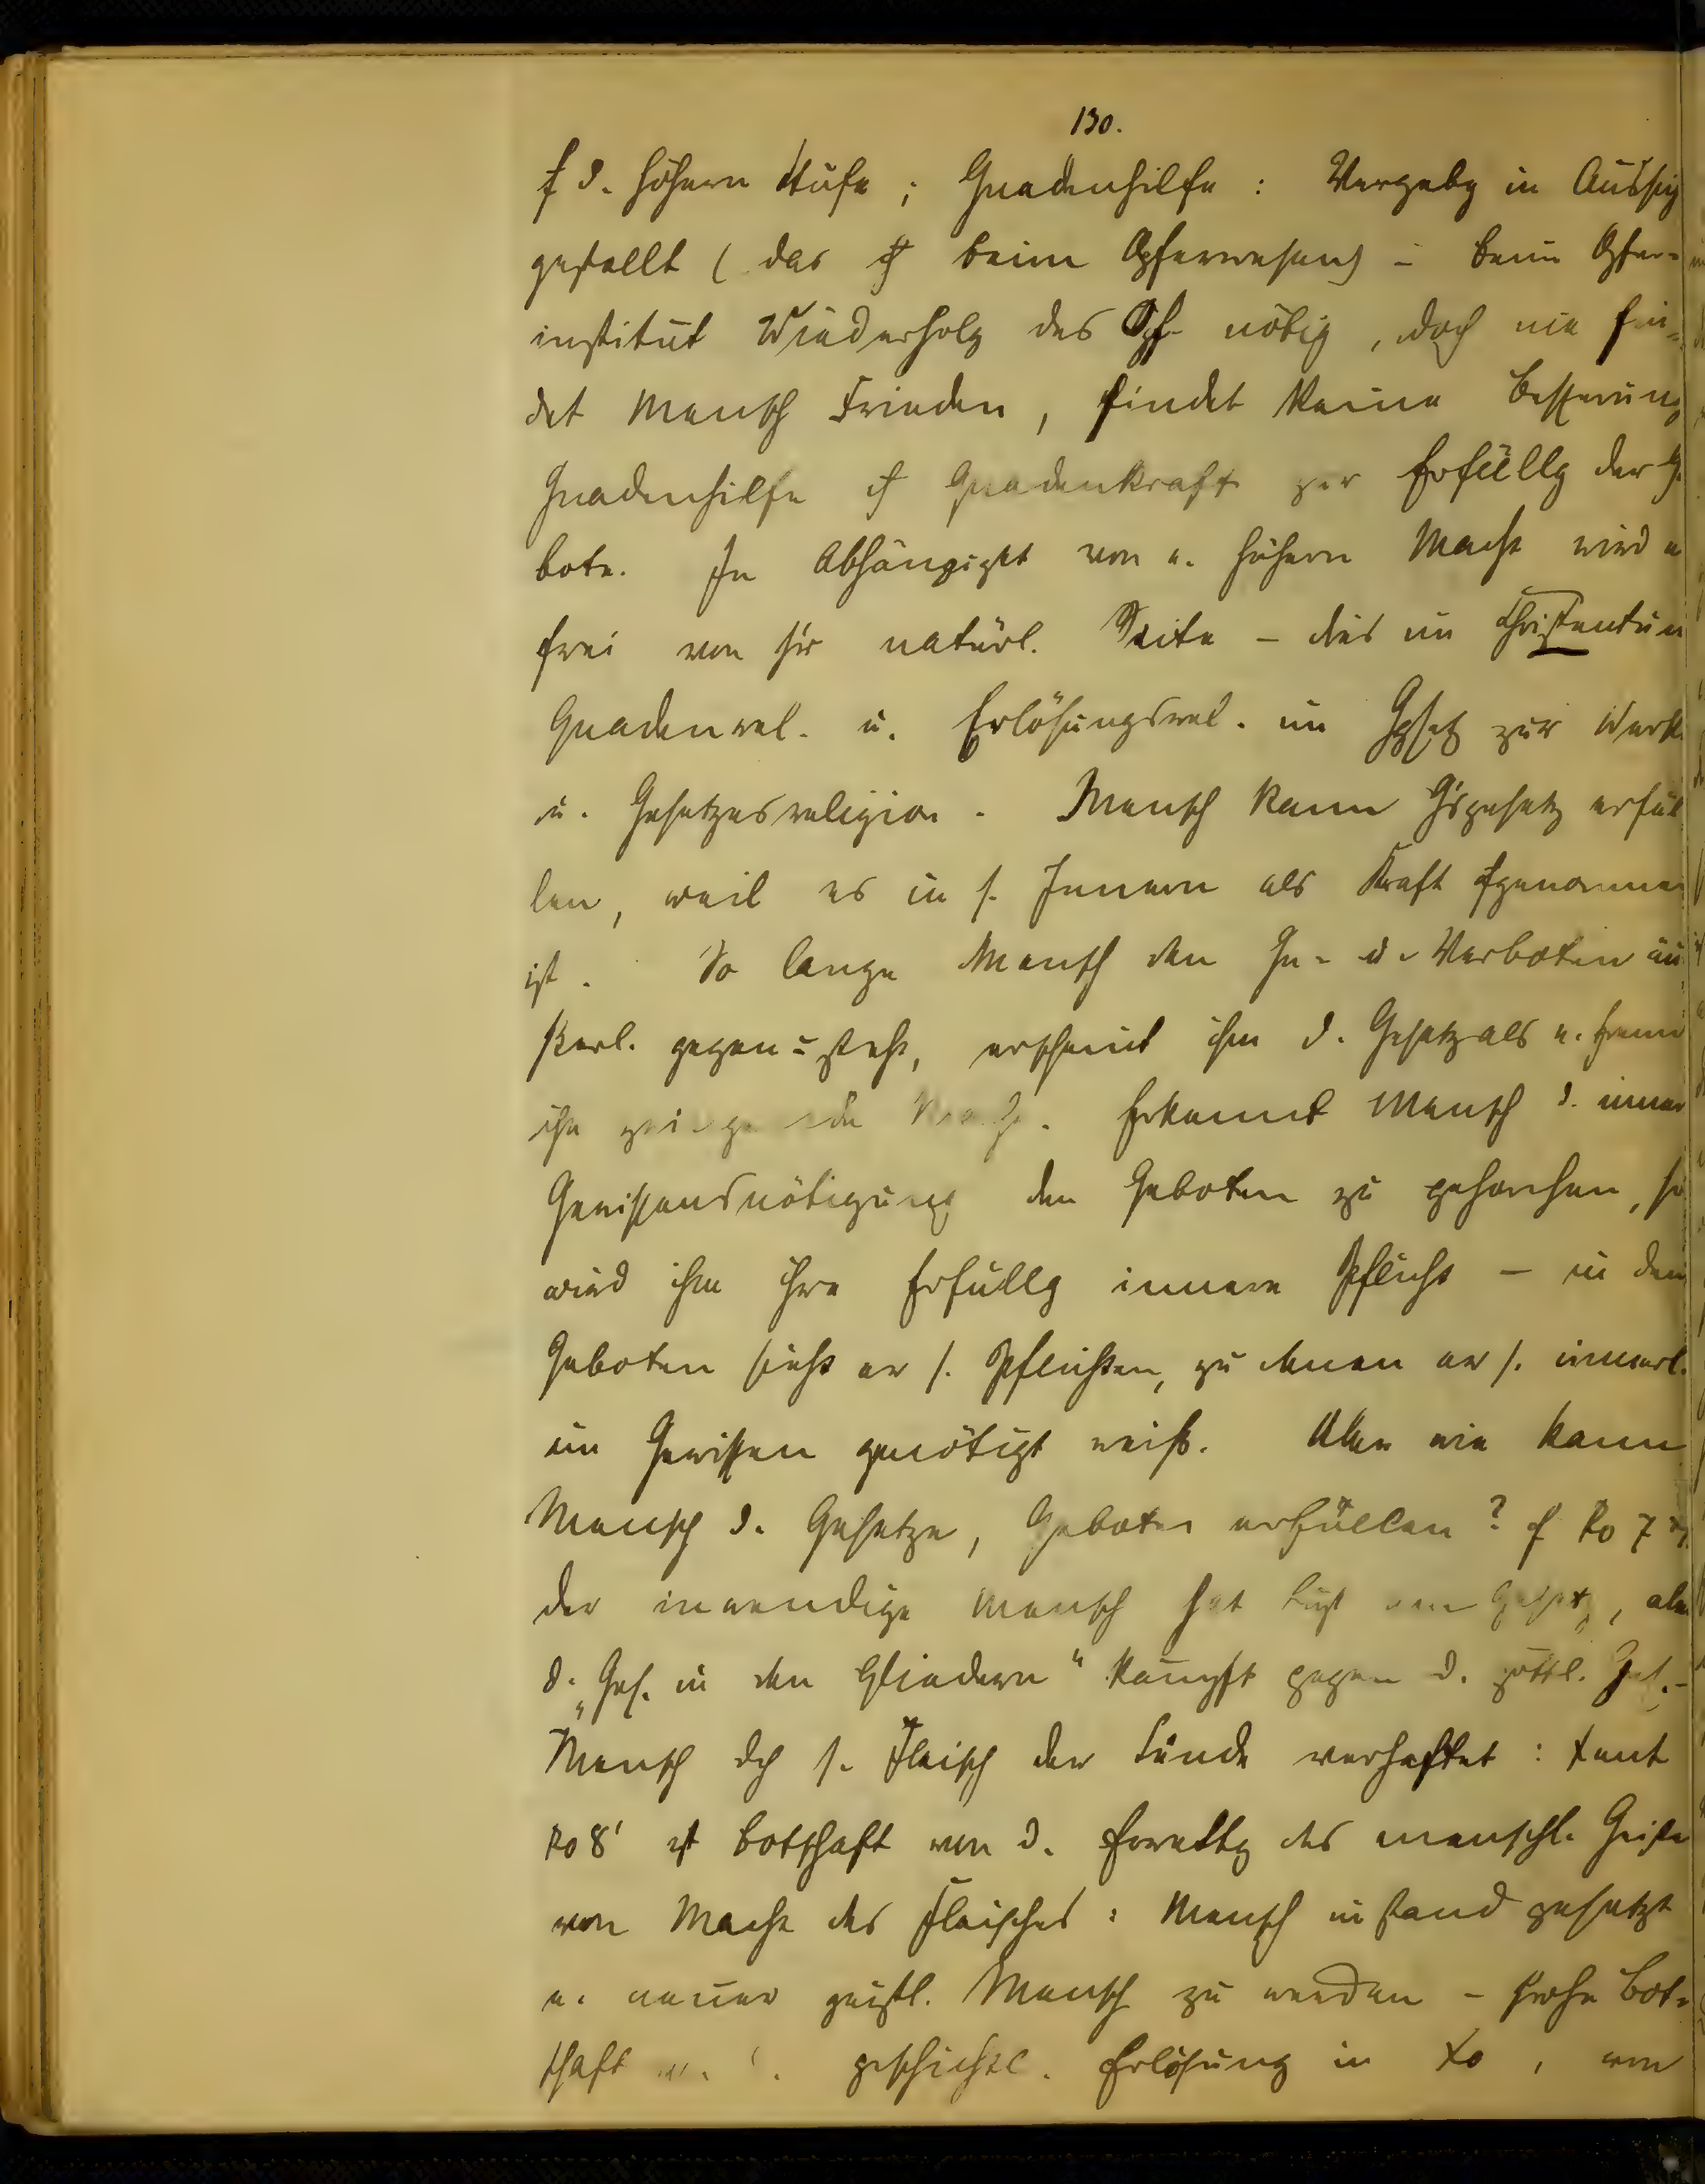 130.
f d. höhern Stufe; Gnadenhilfe: Vergebg in Aussicht
gestellt (das ist beim Opferwesen) - beim Opfer-
institut Wiederholg des Opf. nötig, doch nie fin-
det Mensch Frieden, findet keine Besserung
Gnadenhilfe ist Gnadenkraft zur Erfüllg der Ge
bote. In Abhängigkt von e. höhern Macht wird
frei von sr natürl. Seite - dies im Christentum
Gnadenrel. u. Erlösungsrel. im Ggsatz zur Werk
u. Gesetzesreligion. Mensch kann G's gesetz erfül
len, weil es in s. Innern als Kraft fgenommen
ist. So lange Mensch den Ge- u. Verboten äu
sserl. gegenü-steht, erscheint ihm d. Gesetz als e. fremd
ihn Erkennt Mensch d. innere
Gewissensnötigung den Geboten zu gehorchen, so
wird ihm ihre Erfüllg innere Pflicht - in den
Geboten sieht er s. Pflichten, zu denen er s. innerl.
im Gewissen genötigt weiss. Aber wie kann
Mensch d. Gesetze, Gebote erfüllen? cf Ro 7
der inwendige Mensch hat Lust am Gesetz, aber
d. „Ges. in den Gliedern" kämpft gegen d. göttl. Ges.-
Mensch dch s. Fleisch der Sünde verhaftet: Xent
Ro 8' ist Botschaft von d. Errettg des menschl. Geistes
von Macht des Fleisches: Mensch in stand gesetzt
e. neuer geistl. Mensch zu werden - frohe Bot-
schaft geschichtl. Erlösung in Xo, von